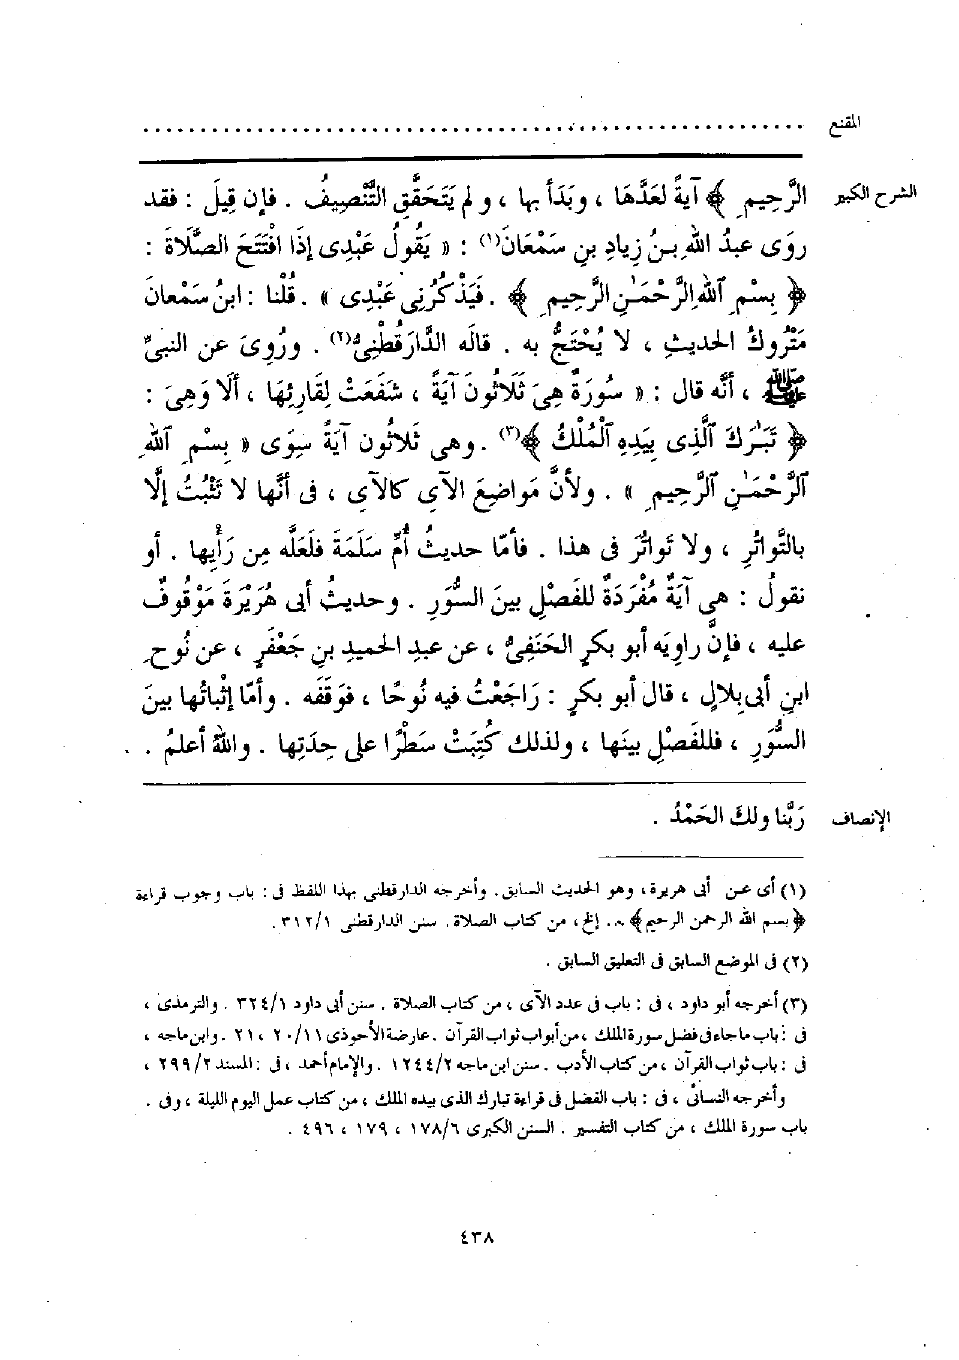 المقنع ..................................................
الشرح الكبير الرَّحِيمِ ﴾ آيةً لعَدَّهَا ، وبَدَأ بها ، ولم يَتَحَقَّقِ التَّنْصِيفُ . فإن قِيلَ : فقد
روَى عبدُ اللهِ بنُ زِيادِ بنِ سَمْعَانَ(١) : « يَقُولُ عَبْدِى إذَا افْتَتَحَ الصَّلَاةَ :
﴿ بِسْمِ ٱللَّهِ الرَّحْمَٰنِ الرَّحِيمِ ﴾ . فَيَذْكُرُنِى عَبْدِى » . قُلْنا : ابنُ سَمْعانَ
مَتْرُوكُ الحديثِ ، لا يُحْتَجُّ به . قالَه الدَّارَقُطْنِىُّ(٢) . ورُوِىَ عن النبىِّ
ﷺ ، أنَّه قال : « سُورَةٌ هِىَ ثَلَاثُونَ آيَةً ، شَفَعَتْ لِقَارِئِهَا ، ألَا وَهِىَ :
﴿ تَبَٰرَكَ ٱلَّذِى بِيَدِهِ ٱلْمُلْكُ ﴾(٣) . وهى ثَلاثُون آيَةً سِوَى « بِسْمِ ٱللهِ
ٱلرَّحْمَٰنِ ٱلرَّحِيمِ » . ولأنَّ مَواضِعَ الآىِ كالآىِ ، فى أنَّها لا تَثْبُتُ إلَّا
بالتَّواتُرِ ، ولا تَواتُرَ فى هذا . فأمّا حديثُ أُمِّ سَلَمَةَ فلَعَلَّه مِن رَأْيِها . أو
نقولُ : هى آيَةٌ مُفْرَدَةٌ للفَصْلِ بينَ السُّوَرِ . وحديثُ أبى هُرَيْرَةَ مَوْقُوفٌ
عليه ، فإنَّ راوِيَه أبو بكرٍ الحَنَفِىُّ ، عن عبدِ الحميدِ بنِ جَعْفَرٍ ، عن نُوحِ
ابنِ أبى بِلالٍ ، قال أبو بكرٍ : رَاجَعْتُ فيه نُوحًا ، فوَقَفَه . وأمّا إثْباتُها بينَ
السُّوَرِ ، فللفَصْلِ بينَها ، ولذلك كُتِبَتْ سَطْرًا على حِدَتِها . واللهُ أعلمُ .
الإنصاف رَبَّنا ولكَ الحَمْدُ .
(١) أى عن أبى هريرة، وهو الحديث السابق. وأخرجه الدارقطنى بهذا اللفظ فى : باب وجوب قراءة
﴿بسم الله الرحمن الرحيم﴾ ... إلخ، من كتاب الصلاة. سنن الدارقطنى ٣١٢/١.
(٢) فى الموضع السابق فى التعليق السابق .
(٣) أخرجه أبو داود ، فى : باب فى عدد الآى ، من كتاب الصلاة . سنن أبى داود ٣٢٤/١ . والترمذى ،
فى : باب ما جاء فى فضل سورة الملك ، من أبواب ثواب القرآن . عارضة الأحوذى ٢٠/١١ ، ٢١ . وابن ماجه ،
فى : باب ثواب القرآن ، من كتاب الأدب . سنن ابن ماجه ١٢٤٤/٢ . والإمام أحمد ، فى : المسند ٢٩٩/٢ ،
وأخرجه النسائى ، فى : باب الفضل فى قراءة تبارك الذى بيده الملك ، من كتاب عمل اليوم الليلة ، وفى .
باب سورة الملك ، من كتاب التفسير . السنن الكبرى ١٧٨/٦ ، ١٧٩ ، ٤٩٦ .
٤٣٨